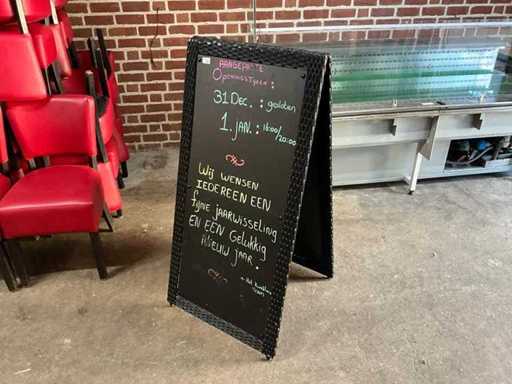 AANGEPASTE
OPENINGSTIJDEN:
31 DEC. : gesloten
1. JAN. : 16:00/20:00
WIJ WENSEN
IEDEREEN EEN
fijne JAARWISSELING
EN EEN Gelukkig
NIEUW JAAR.